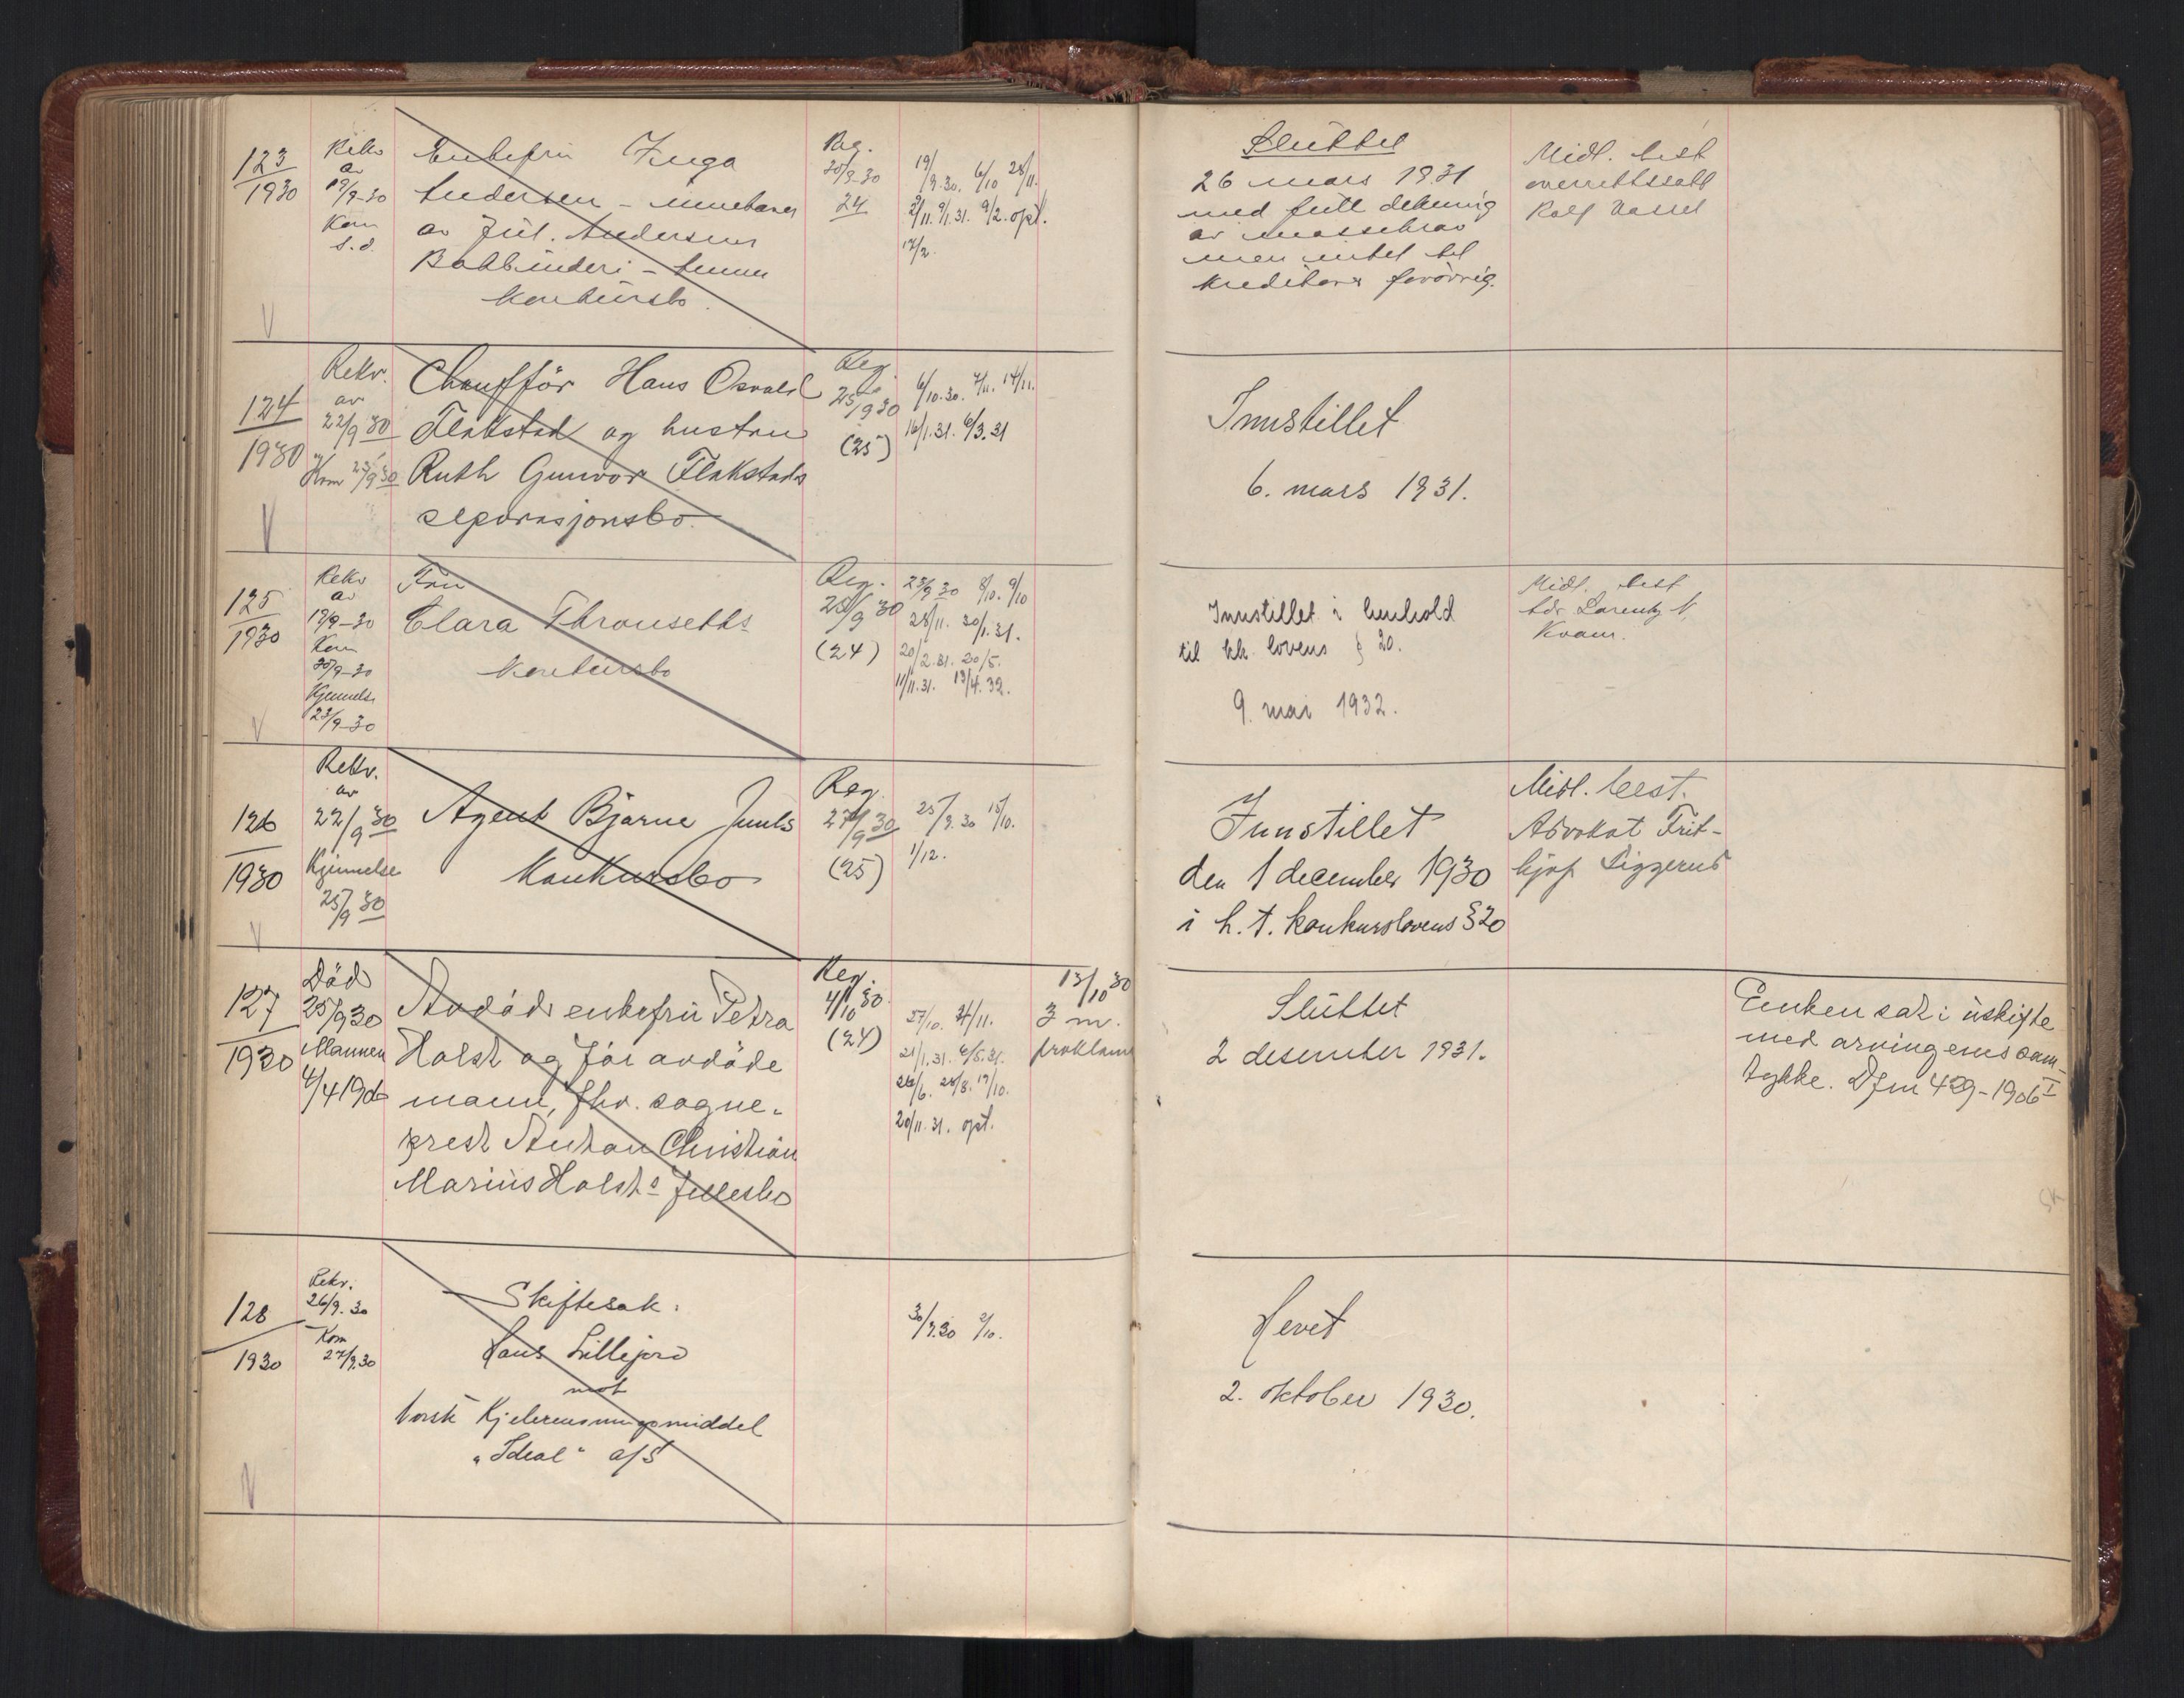 123
1930
Rekv
av
19/9-30
Kom
s.d.
Enkefru Inga
Andersen - innehaver
av Jul. Andersens
Bokbinderi -
konkursbo.
Reg.
20/9-30
24
19/9.30. 6/10 28/11.
9/1.31. 9/2. opt.
17/2.
Sluttet
26 mars 1931
med full dekning
av massekrav
men intet til
kreditorer forövrig.
Midl. best
overrettssakf
Rolf
124
1930
Rekv.
av
22/9 30
Kom 23/9 30
Chaufför Hans Osvald
Flakstad og hustru
Ruth Gunvor Flakstads
separasjonsbo.
Reg.
25/9 30
(25)
6/10.30. 7/11. 14/11.
16/1.31. 6/3.31
Innstillet
6. mars 1931.
125
1930
Rekv
av
19/9-30
Kom
20/9-30
Kjennelse
23/9-30
Fru
Clara Thronsetts
konkursbo
Reg.
25/9 30
(24)
23/9 30 8/10. 9/10
28/11. 30/1.31.
20/2.31. 20/5.
11/11.31. 13/4.32.
Innstillet i henhold
til kk. lovens § 20.
9. mai 1932.
Midl. best
adv. Lorentz N.
Kvam.
126
1930
Rekv.
av
22/9 30
Kjennelse
25/9 30
Agent Bjarne Juuls
Konkursbo
Reg.
27/9 30
(25)
25/9.30 15/10.
1/12.
Innstillet
den 1 december 1930
i h. t. konkurslovens § 20
Midl. best.
Advokat Frit-
hjof Siggerud
127
1930
Död
25/9 30
Mannen
4/4 1906
Avdöde enkefru Petra
Holst og för avdöde
mann, fhv. sogne-
prest Anton Christian
Marius Holsts fellesbo
Reg.
4/10 30.
(24)
27/10. 4/11.
21/1.31. 6/5.31.
26/6. 28/8. 19/10.
20/11.31. opt.
13/10 30
3 m.
proklama
Sluttet
2 desember 1931.
Enken sat i uskifte
med arvingenes sam-
tykke. Djm 429-1906 I
128
1930
Rekv.
26/9.30
Kom
27/9.30
Skiftesak:
Hans Lillejord
mot
Norsk Kjelerensningsmiddel
"Ideal" a/S
30/9.30 2/10.
Hevet
2. oktober 1930.
SK